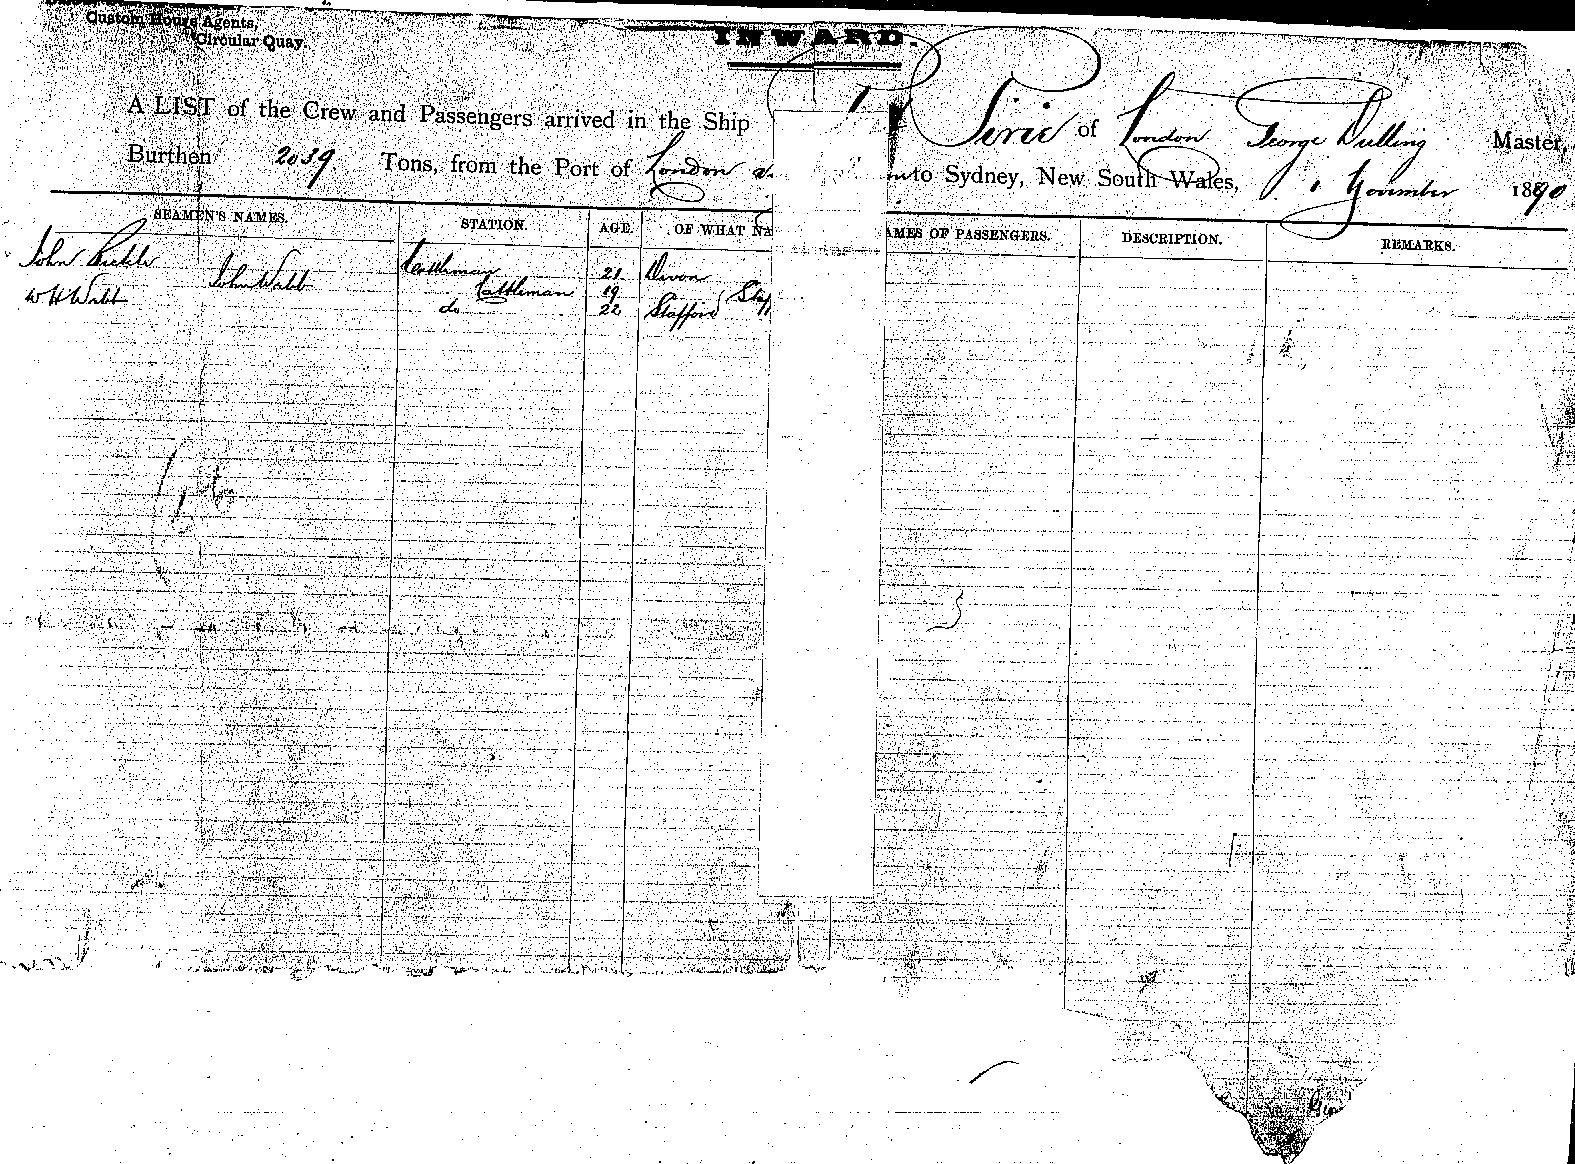 Custom House Agents,
Circular Quay.
INWARD.
A LIST of the Crew and Passengers arrived in the Ship of London George Dulling Master,
Burthen 2039 Tons, from the Port of London into Sydney, New South Wales, 1 November 1890
SEAMEN'S NAMES. STATION. AGE. OF WHAT NA AMES OF PASSENGERS. DESCRIPTION. REMARKS.
John Cattleman 21 Devon
John Webb Cattleman 19 Staf
W H Webb do 22 Stafford